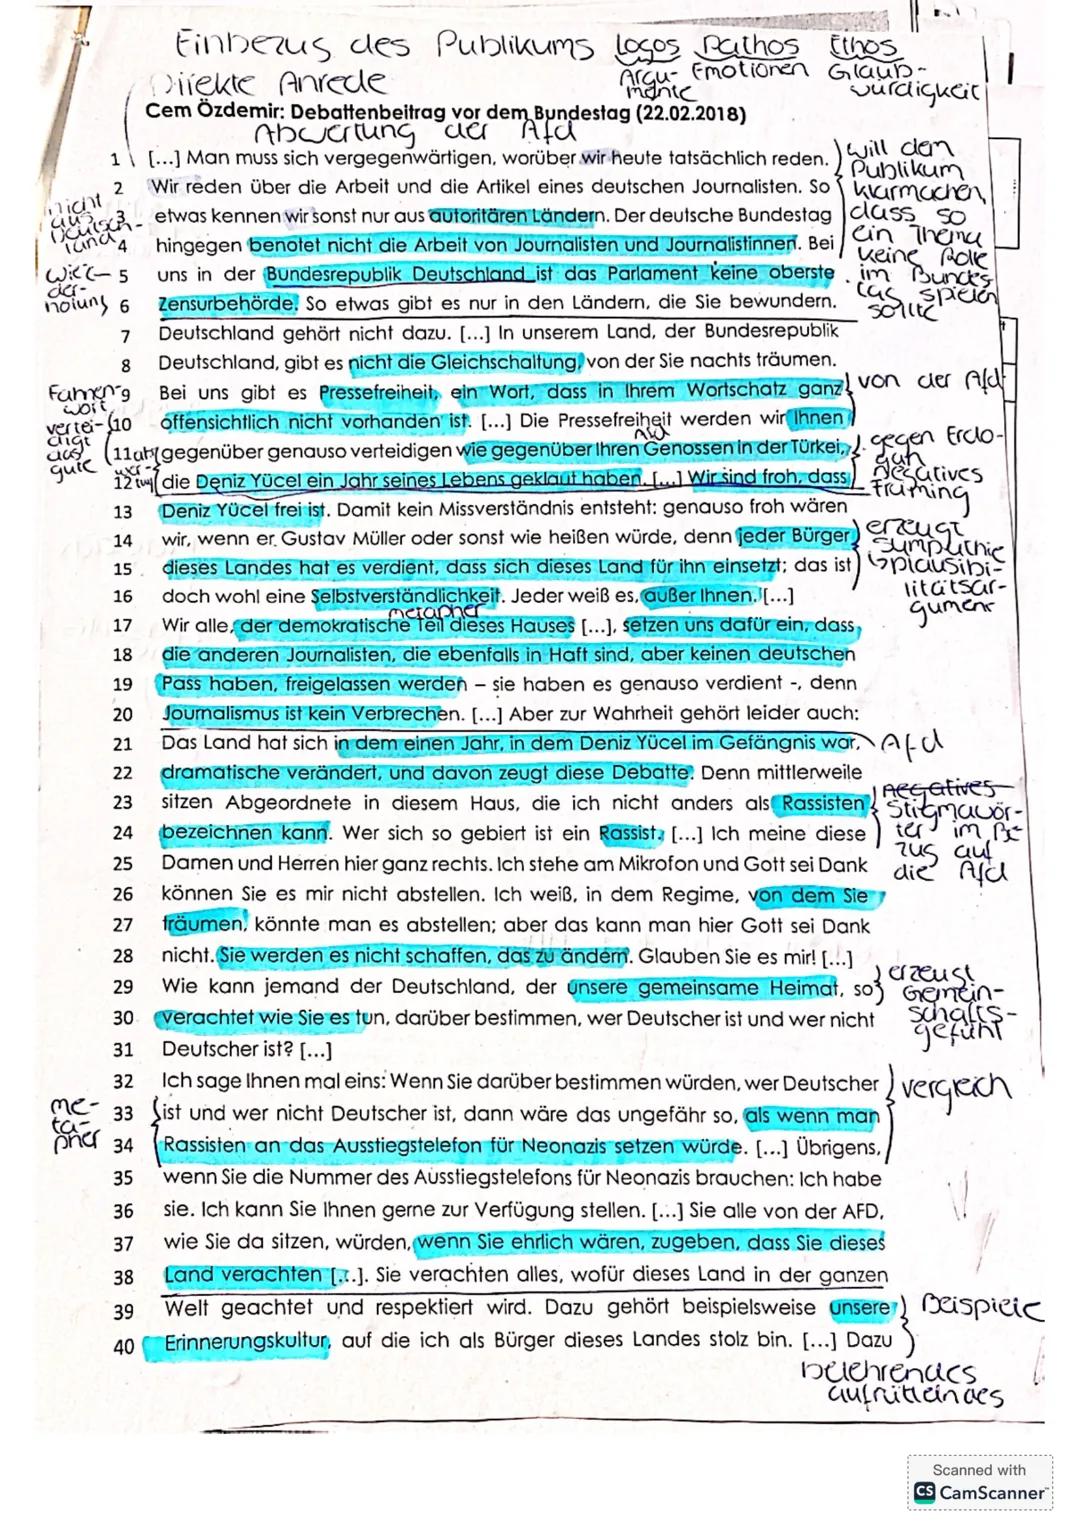 Einbezug des Publikums Logos Pathos Ethos
Direkte Anrede Argu- Emotionen Glaub-
mente würdigkeit
Cem Özdemir: Debattenbeitrag vor dem Bundestag (22.02.2018)
Abwertung der Afd
1 [...] Man muss sich vergegenwärtigen, worüber wir heute tatsächlich reden.
2 Wir reden über die Arbeit und die Artikel eines deutschen Journalisten. So
3 etwas kennen wir sonst nur aus autoritären Ländern. Der deutsche Bundestag
4 hingegen benotet nicht die Arbeit von Journalisten und Journalistinnen. Bei
5 uns in der Bundesrepublik Deutschland ist das Parlament keine oberste
6 Zensurbehörde. So etwas gibt es nur in den Ländern, die Sie bewundern.
7 Deutschland gehört nicht dazu. [...] In unserem Land, der Bundesrepublik
8 Deutschland, gibt es nicht die Gleichschaltung, von der Sie nachts träumen.
9 Bei uns gibt es Pressefreiheit, ein Wort, dass in Ihrem Wortschatz ganz
10 offensichtlich nicht vorhanden ist. [...] Die Pressefreiheit werden wir Ihnen
11 gegenüber genauso verteidigen wie gegenüber Ihren Genossen in der Türkei,
12 die Deniz Yücel ein Jahr seines Lebens geklaut haben. [...] Wir sind froh, dass
13 Deniz Yücel frei ist. Damit kein Missverständnis entsteht: genauso froh wären
14 wir, wenn er Gustav Müller oder sonst wie heißen würde, denn jeder Bürger
15 dieses Landes hat es verdient, dass sich dieses Land für ihn einsetzt; das ist
16 doch wohl eine Selbstverständlichkeit. Jeder weiß es, außer Ihnen. [...]
metapher
17 Wir alle, der demokratische Teil dieses Hauses [...], setzen uns dafür ein, dass
18 die anderen Journalisten, die ebenfalls in Haft sind, aber keinen deutschen
19 Pass haben, freigelassen werden – sie haben es genauso verdient -, denn
20 Journalismus ist kein Verbrechen. [...] Aber zur Wahrheit gehört leider auch:
21 Das Land hat sich in dem einen Jahr, in dem Deniz Yücel im Gefängnis war,
22 dramatische verändert, und davon zeugt diese Debatte. Denn mittlerweile
23 sitzen Abgeordnete in diesem Haus, die ich nicht anders als Rassisten
24 bezeichnen kann. Wer sich so gebiert ist ein Rassist. [...] Ich meine diese
25 Damen und Herren hier ganz rechts. Ich stehe am Mikrofon und Gott sei Dank
26 können Sie es mir nicht abstellen. Ich weiß, in dem Regime, von dem Sie
27 träumen, könnte man es abstellen; aber das kann man hier Gott sei Dank
28 nicht. Sie werden es nicht schaffen, das zu ändern. Glauben Sie es mir! [...]
29 Wie kann jemand der Deutschland, der unsere gemeinsame Heimat, so
30 verachtet wie Sie es tun, darüber bestimmen, wer Deutscher ist und wer nicht
31 Deutscher ist? [...]
32 Ich sage Ihnen mal eins: Wenn Sie darüber bestimmen würden, wer Deutscher
33 ist und wer nicht Deutscher ist, dann wäre das ungefähr so, als wenn man
34 Rassisten an das Ausstiegstelefon für Neonazis setzen würde. [...] Übrigens,
35 wenn Sie die Nummer des Ausstiegstelefons für Neonazis brauchen: Ich habe
36 sie. Ich kann Sie Ihnen gerne zur Verfügung stellen. [...] Sie alle von der AFD,
37 wie Sie da sitzen, würden, wenn Sie ehrlich wären, zugeben, dass Sie dieses
38 Land verachten [...]. Sie verachten alles, wofür dieses Land in der ganzen
39 Welt geachtet und respektiert wird. Dazu gehört beispielsweise unsere
40 Erinnerungskultur, auf die ich als Bürger dieses Landes stolz bin. [...] Dazu
nicht
aus
Deutsch-
land
wie-
der-
holung
Fahnen-
wort
vertei-
digt
das
gute
me-
ta-
pher
will dem
Publikum
klarmachen,
dass so
ein Thema
keine Rolle
im Bundes-
tag spielen
sollte
von der Afd
gegen Erdo-
gan
Negatives
framing
erzeugt
sympathie
plausibi-
litätsar-
gument
Afd
negatives
Stigmawör-
ter im Be-
zug auf
die Afd
erzeugt
Gemein-
schafts-
gefühl
vergleich
Beispiele
belehrendes
aufrüttelndes
Scanned with
CS CamScanner